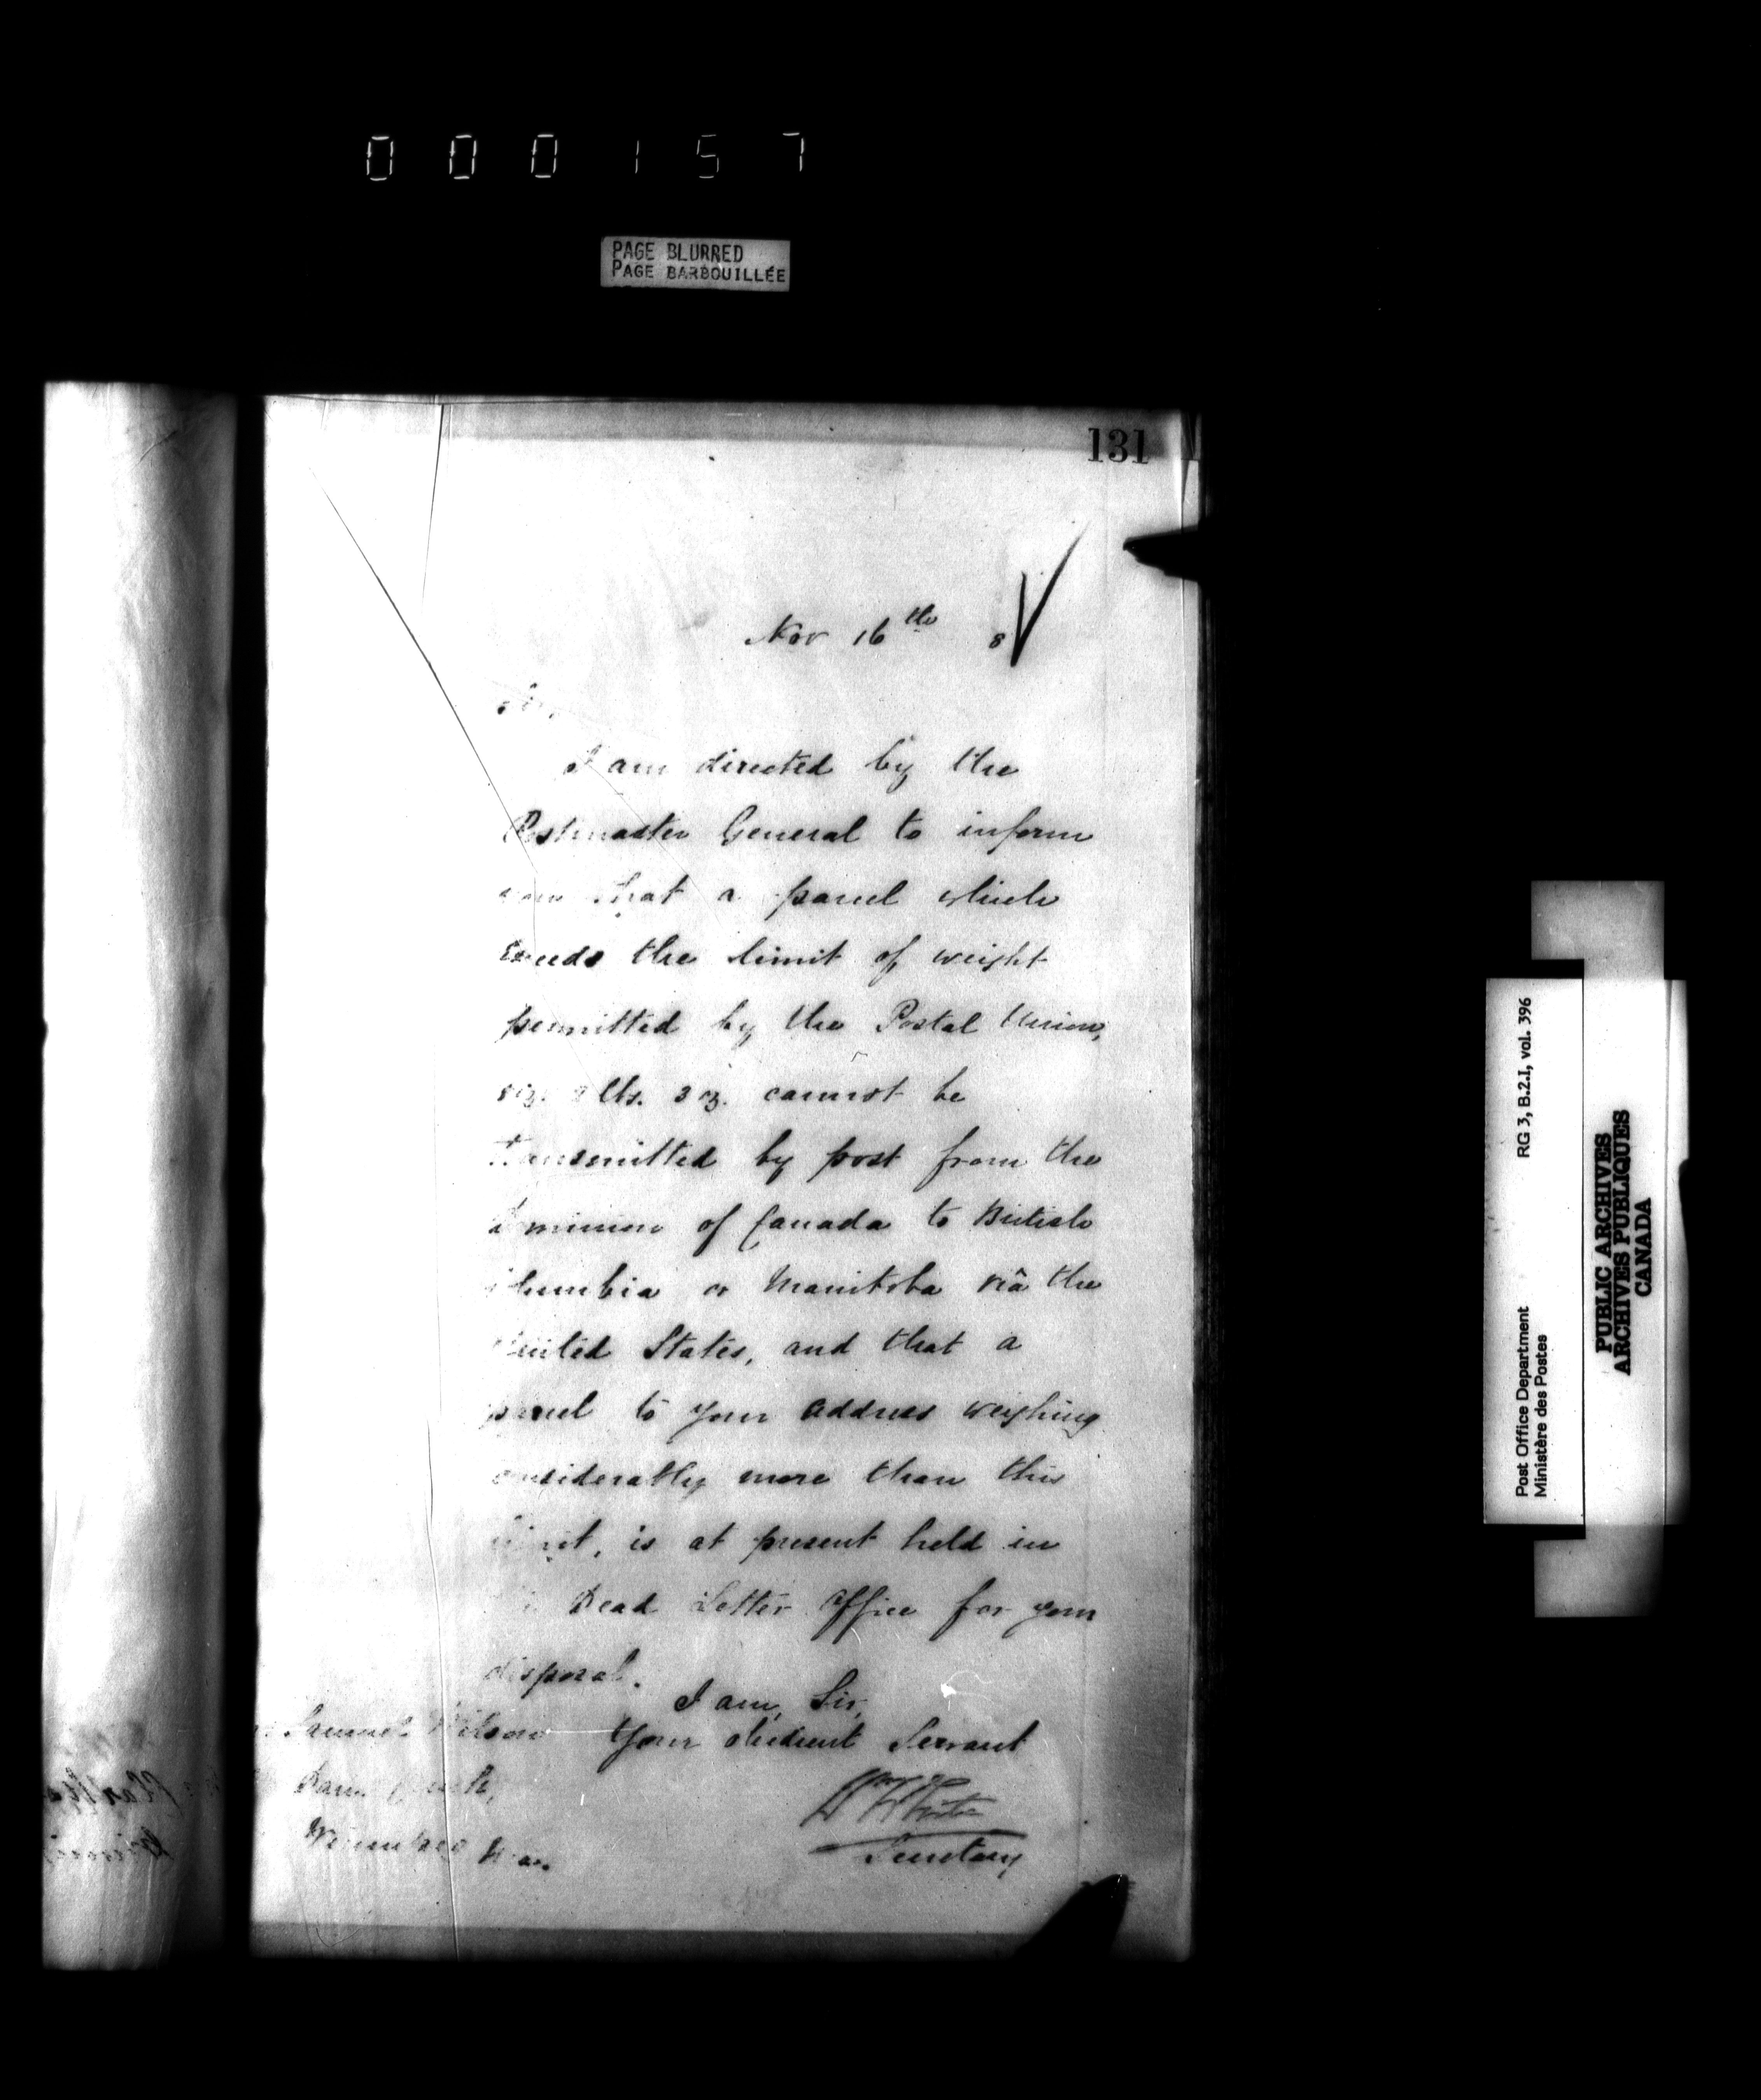 000157
PAGE BLURRED
PAGE BARBOUILLÉE
131
Nov 16th 8
Sir,
I am directed by the
Postmaster General to inform
you that a parcel which
exceeds the limit of weight
permitted by the Postal Union,
viz. lbs. 3 oz. cannot be
transmitted by post from the
Dominion of Canada to British
Columbia or Manitoba viâ the
United States, and that a
parcel to your address weighing
considerably more than this
limit, is at present held in
Dead Letter Office for your
disposal.
I am, Sir,
Your obedient Servant
Wm White
Secretary
Samuel Wilson
Man.
Post Office Department RG 3, B.2.I, vol. 396
Ministère des Postes
PUBLIC ARCHIVES
ARCHIVES PUBLIQUES
CANADA